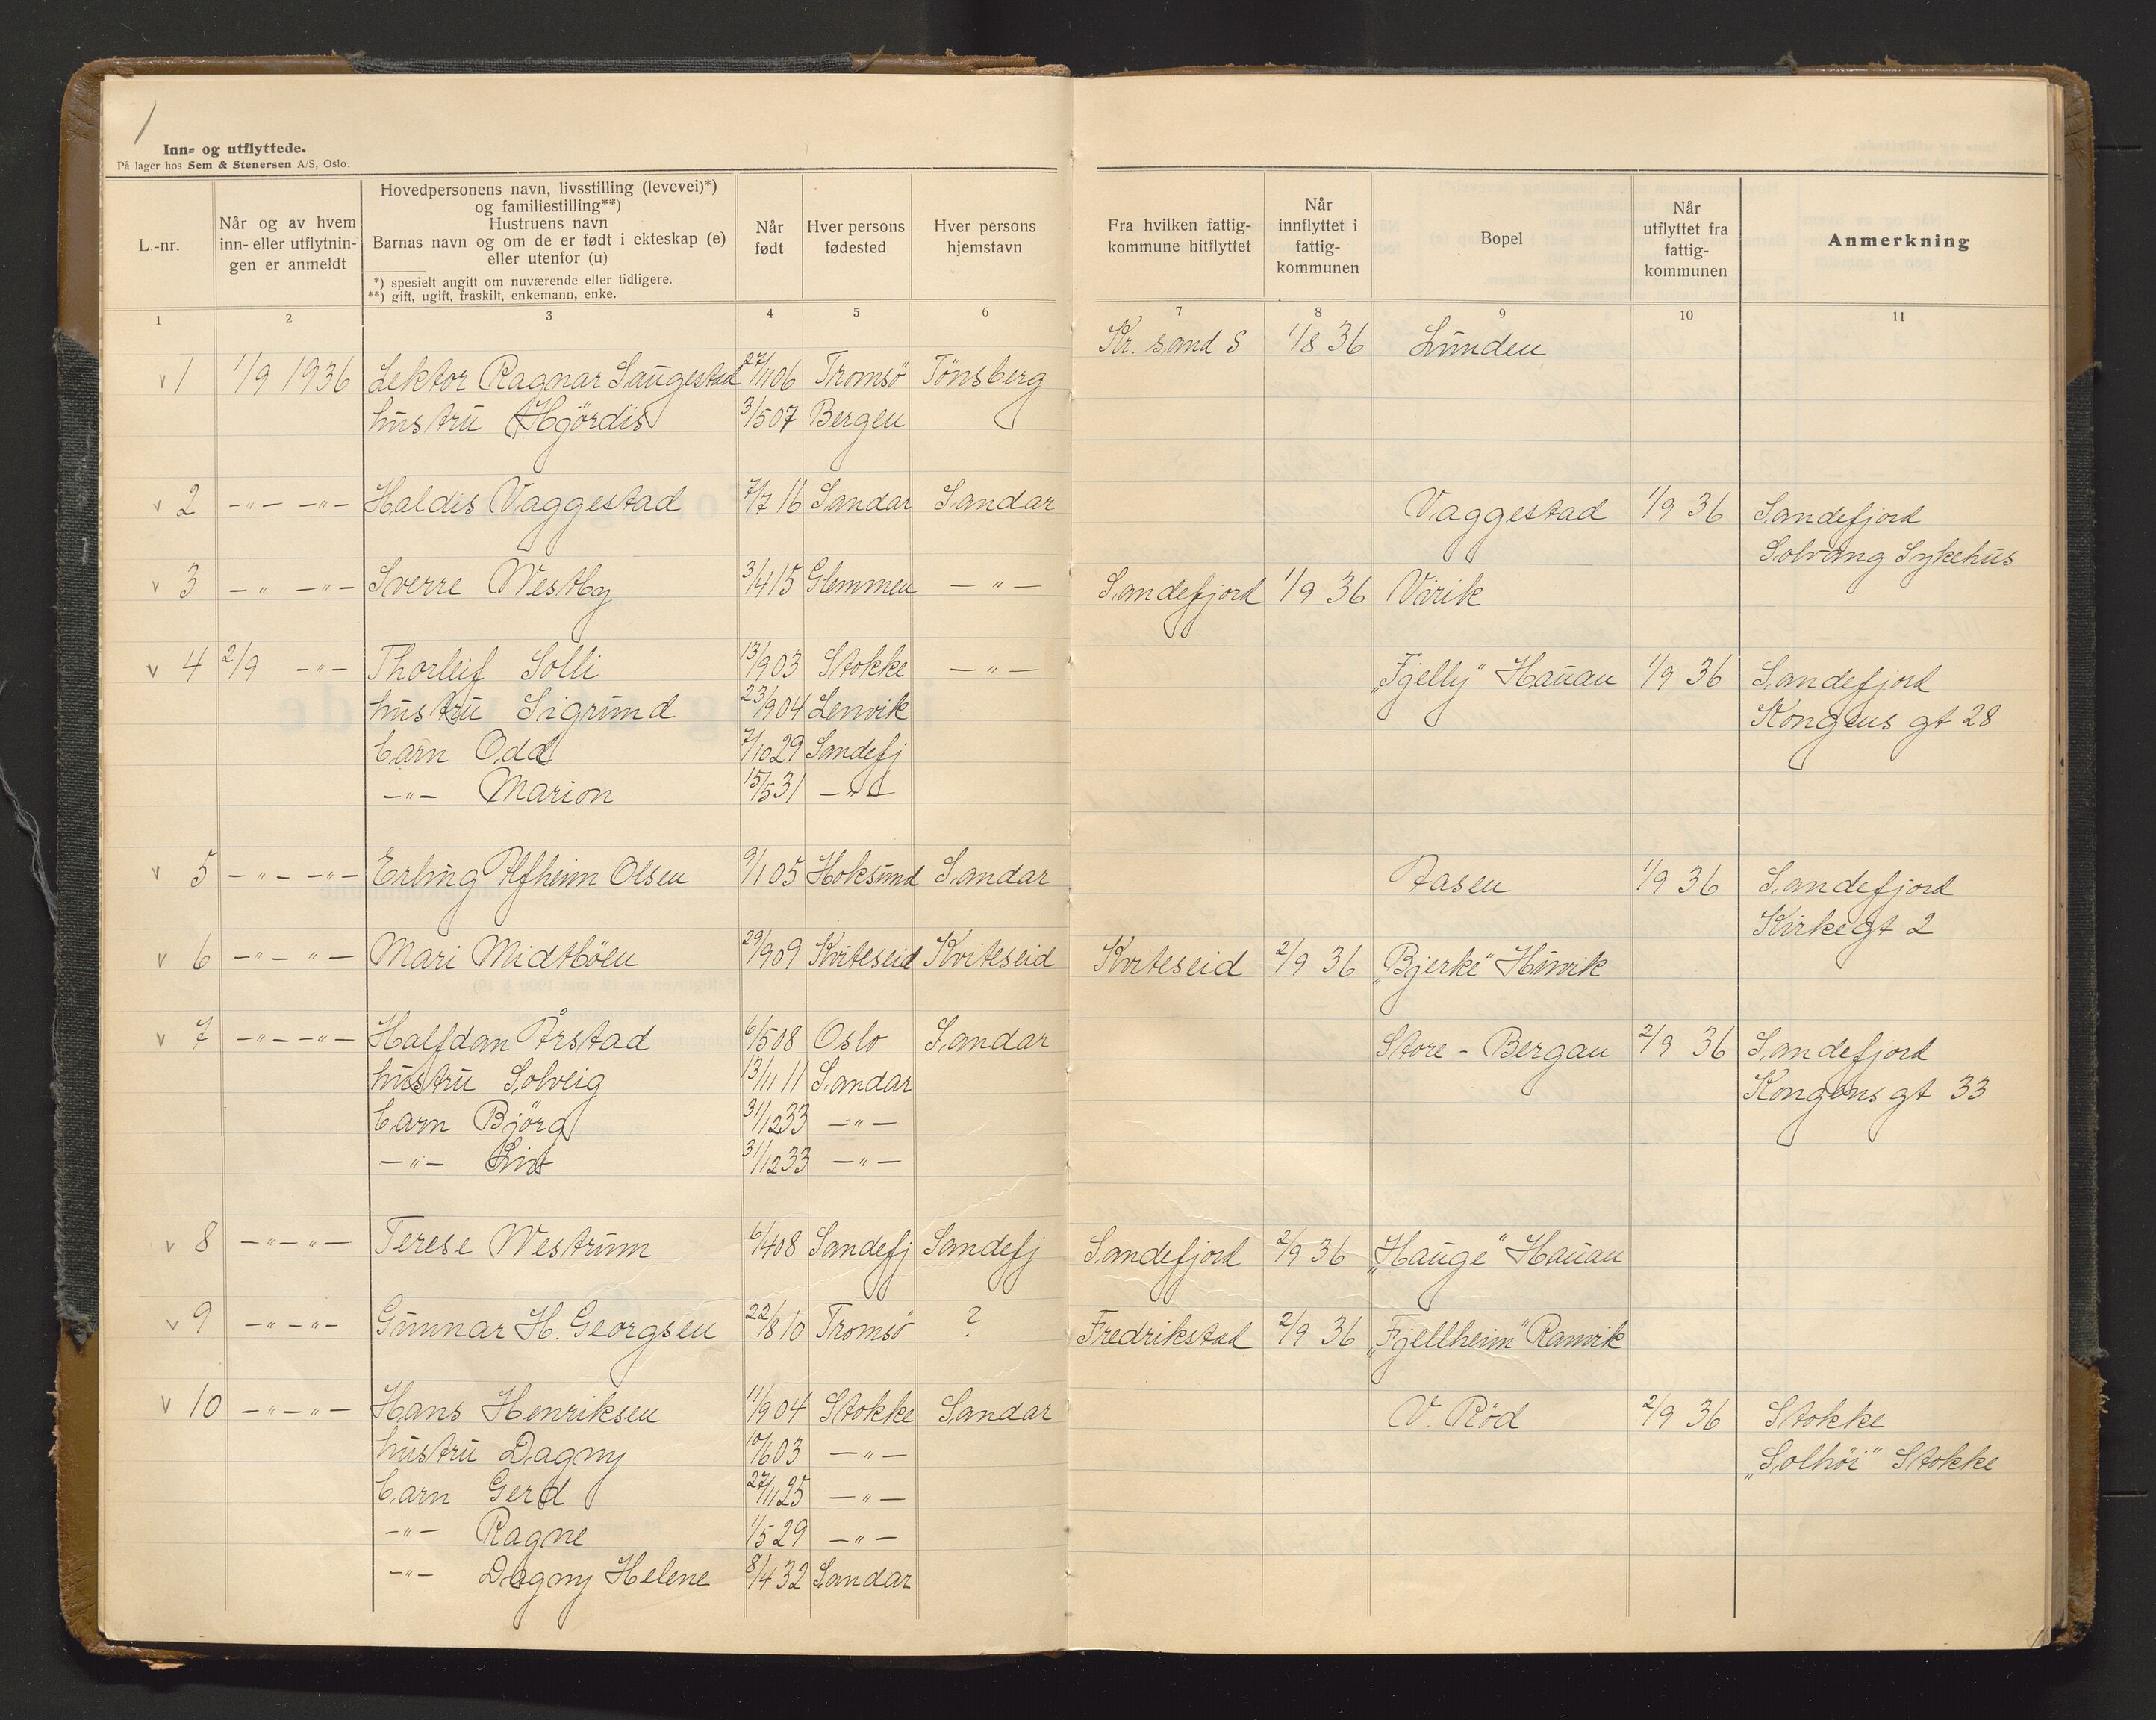 1
Inn= og utflyttede.
På lager hos Sem & Stenersen A/S, Oslo.
L.-nr.
Når og av hvem
inn- eller utflytnin-
gen er anmeldt
Hovedpersonens navn, livsstilling (levevei)*)
og familiestilling**)
Hustruens navn
Barnas navn og om de er født i ekteskap (e)
eller utenfor (u)
*) spesielt angitt om nuværende eller tidligere.
**) gift, ugift, fraskilt, enkemann, enke.
Når
født
Hver persons
fødested
Hver persons
hjemstavn
Fra hvilken fattig-
kommune hitflyttet
Når
innflyttet i
fattig-
kommunen
Bopel
Når
utflyttet fra
fattig-
kommunen
Anmerkning
1 2 3 4 5 6 7 8 9 10 11
v 1 1/9 1936 Lektor Ragnar Saugestad 27/1106 Tromsö Tönsberg Kr. sand S 1/8 36 Lunden
hustru Hjördis 3/507 Bergen
v 2 -"- -"- Haldis Vaggestad 7/7 16 Sandar Sandar Vaggestad 1/9 36 Sandefjord
Solvang Sykehus
v 3 -"- -"- Sverre Westby 3/415 Glemmen -"- Sandefjord 1/9 36 Virik
v 4 2/9 -"- Thorleif Solli 13/903 Stokke -"- „Fjelly" Hauan 1/9 36 Sandefjord
hustru Sigrund 23/904 Lenvik Kongens gt 28
barn Odd 7/1029 Sandefj
-"- Marion 15/531 -"-
v 5 -"- -"- Erling Alfheim Olsen 9/105 Hoksund Sandar Aasen 1/9 36 Sandefjord
Kirkegt 2
v 6 -"- -"- Mari Midtböen 29/909 Kviteseid Kviteseid Kviteseid 2/9 36 „Bjerke" Hinvik
v 7 -"- -"- Halfdan Årstad 6/508 Oslo Sandar Store - Bergan 2/9 36 Sandefjord
hustru Solveig 13/11 11 Sandar Kongens gt 33
barn Björg 31/1233 -"-
-"- 31/1233 -"-
v 8 -"- -"- Terese Westrum 6/408 Sandefj Sandefj Sandefjord 2/9 36 „Hauge" Hauan
v 9 -"- -"- Gunnar H. Georgsen 22/810 Tromsö ? Fredrikstad 2/9 36 „Fjellheim" Ranvik
v 10 -"- -"- Hans Henriksen 11/904 Stokke Sandar V. Röd 2/9 36 Stokke
hustru Dagny 10/603 -"- „Solhöi" Stokke
barn Gerd 27/1125 -"-
-"- Ragne 1/529 -"-
-"- Dagny Helene 8/432 Sandar